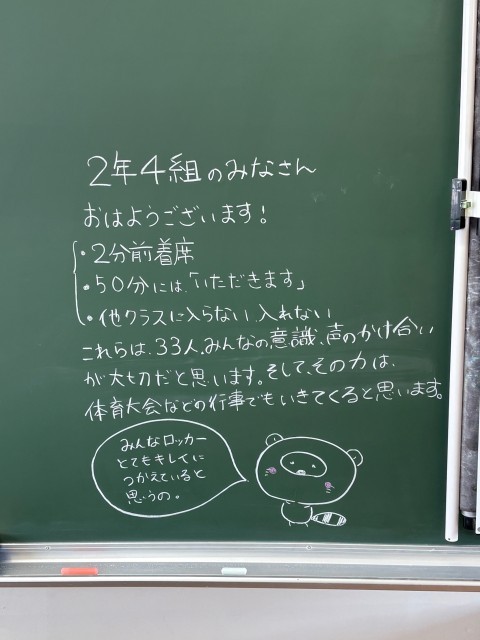 2年4組のみなさん
おはようございます!
・2分前着席
・50分には、「いただきます」
・他クラスに入らない、入れない
これらは、33人、みんなの意識、声のかけ合い
が大切だと思います。そして、その力は、
体育大会などの行事でもいきてくると思います。
みんなロッカー
とてもキレイに
つかえていると
思うの。